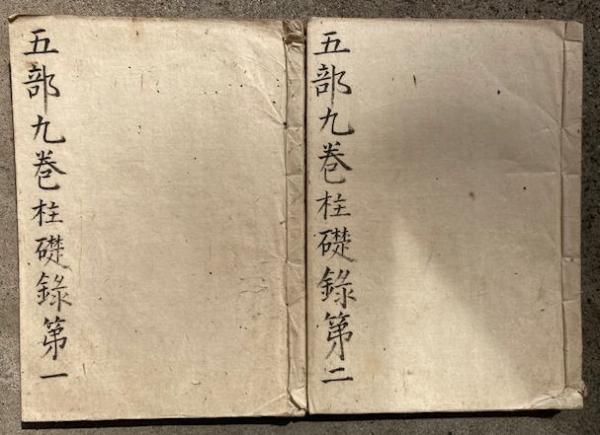 五部九巻柱礎錄第一
五部九巻柱礎錄第二